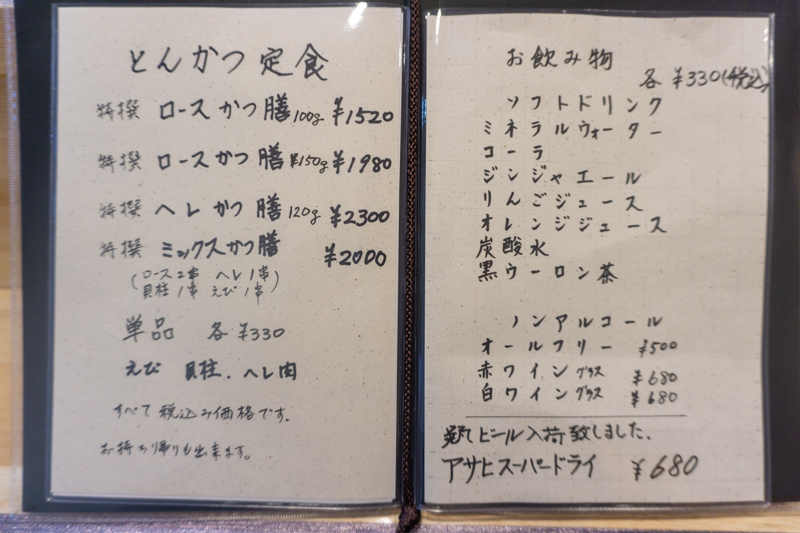 とんかつ定食
特撰 ロースかつ膳 100g ¥1520
特撰 ロースかつ膳 150g ¥1980
特撰 ヘレかつ膳 120g ¥2300
特撰 ミックスかつ膳 ¥2000
(ロース2串 ヘレ1串
貝柱1串 えび1串)
単品 各¥330
えび 貝柱.ヘレ肉
すべて税込み価格です。
お持ち帰りも出来ます。
お飲み物
各¥330(税込)
ソフトドリンク
ミネラルウォーター
コーラ
ジンジャエール
りんごジュース
オレンジジュース
炭酸水
黒ウーロン茶
ノンアルコール
オールフリー ¥500
赤ワイン グラス ¥680
白ワイン グラス ¥680
瓶ビール入荷致しました.
アサヒスーパードライ ¥680